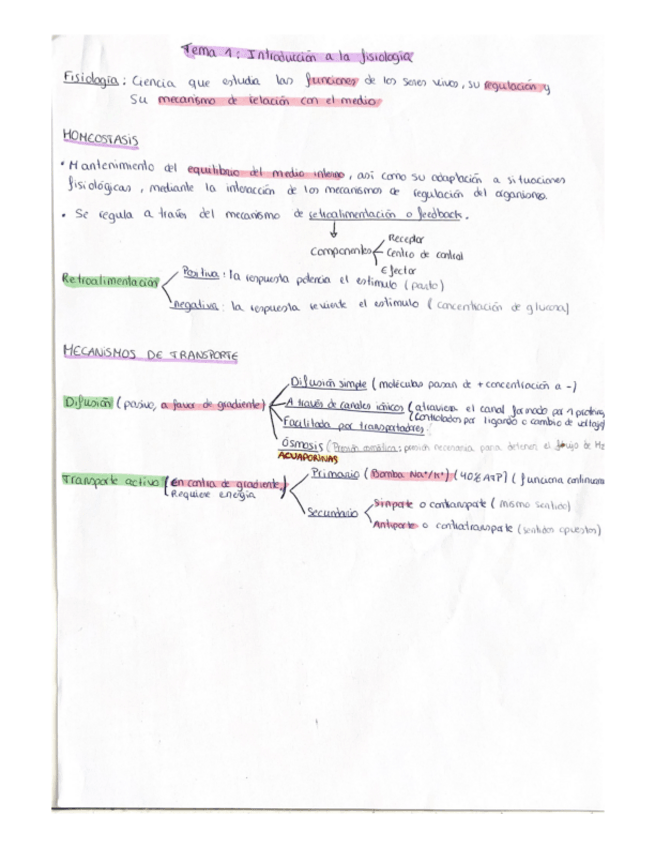 Tema 1: Introducción a la fisiología
Fisiología: Ciencia que estudia las funciones de los seres vivos, su regulación y
su mecanismo de relación con el medio
HOMEOSTASIS
• Mantenimiento del equilibrio del medio interno, así como su adaptación a situaciones
fisiológicas, mediante la interacción de los mecanismos de regulación del organismo.
• Se regula a través del mecanismo de retroalimentación o feedback.
Componentes
Receptor
Centro de control
Efector
Retroalimentación
Positiva: la respuesta potencia el estímulo (parto)
negativa: la respuesta revierte el estímulo (concentración de glucosa)
MECANISMOS DE TRANSPORTE
Difusión (pasivo, a favor de gradiente)
Difusión simple (moléculas pasan de + concentración a -)
A través de canales iónicos (atraviesan el canal formado por 1 proteína
(controlados por ligando o cambio de voltaje
Facilitada por transportadores.
Ósmosis (Presión osmótica: presión necesaria para detener el flujo de H2
ACUAPORINAS
Transporte activo (En contra de gradiente,)
Requiere energía
Primario (Bomba Na+/K+) (40% ATP) (funciona continuam
Secundario
Simporte o cotransporte (mismo sentido)
Antiporte o contratransporte (sentidos opuestos)